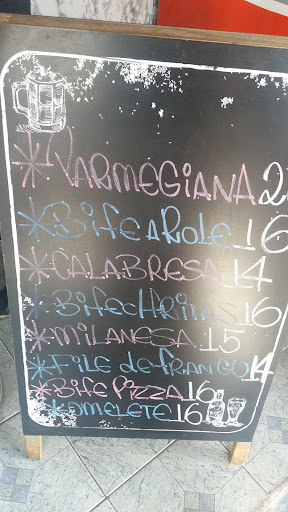 *PARMEGIANA 2
*BIFE A ROLE 16
*CALABRESA 14
*BIFE C/FRITAS 16
*MILANESA 15
*FILE de FRANGO 14
*BIFE PIZZA 16
*OMELETE 16